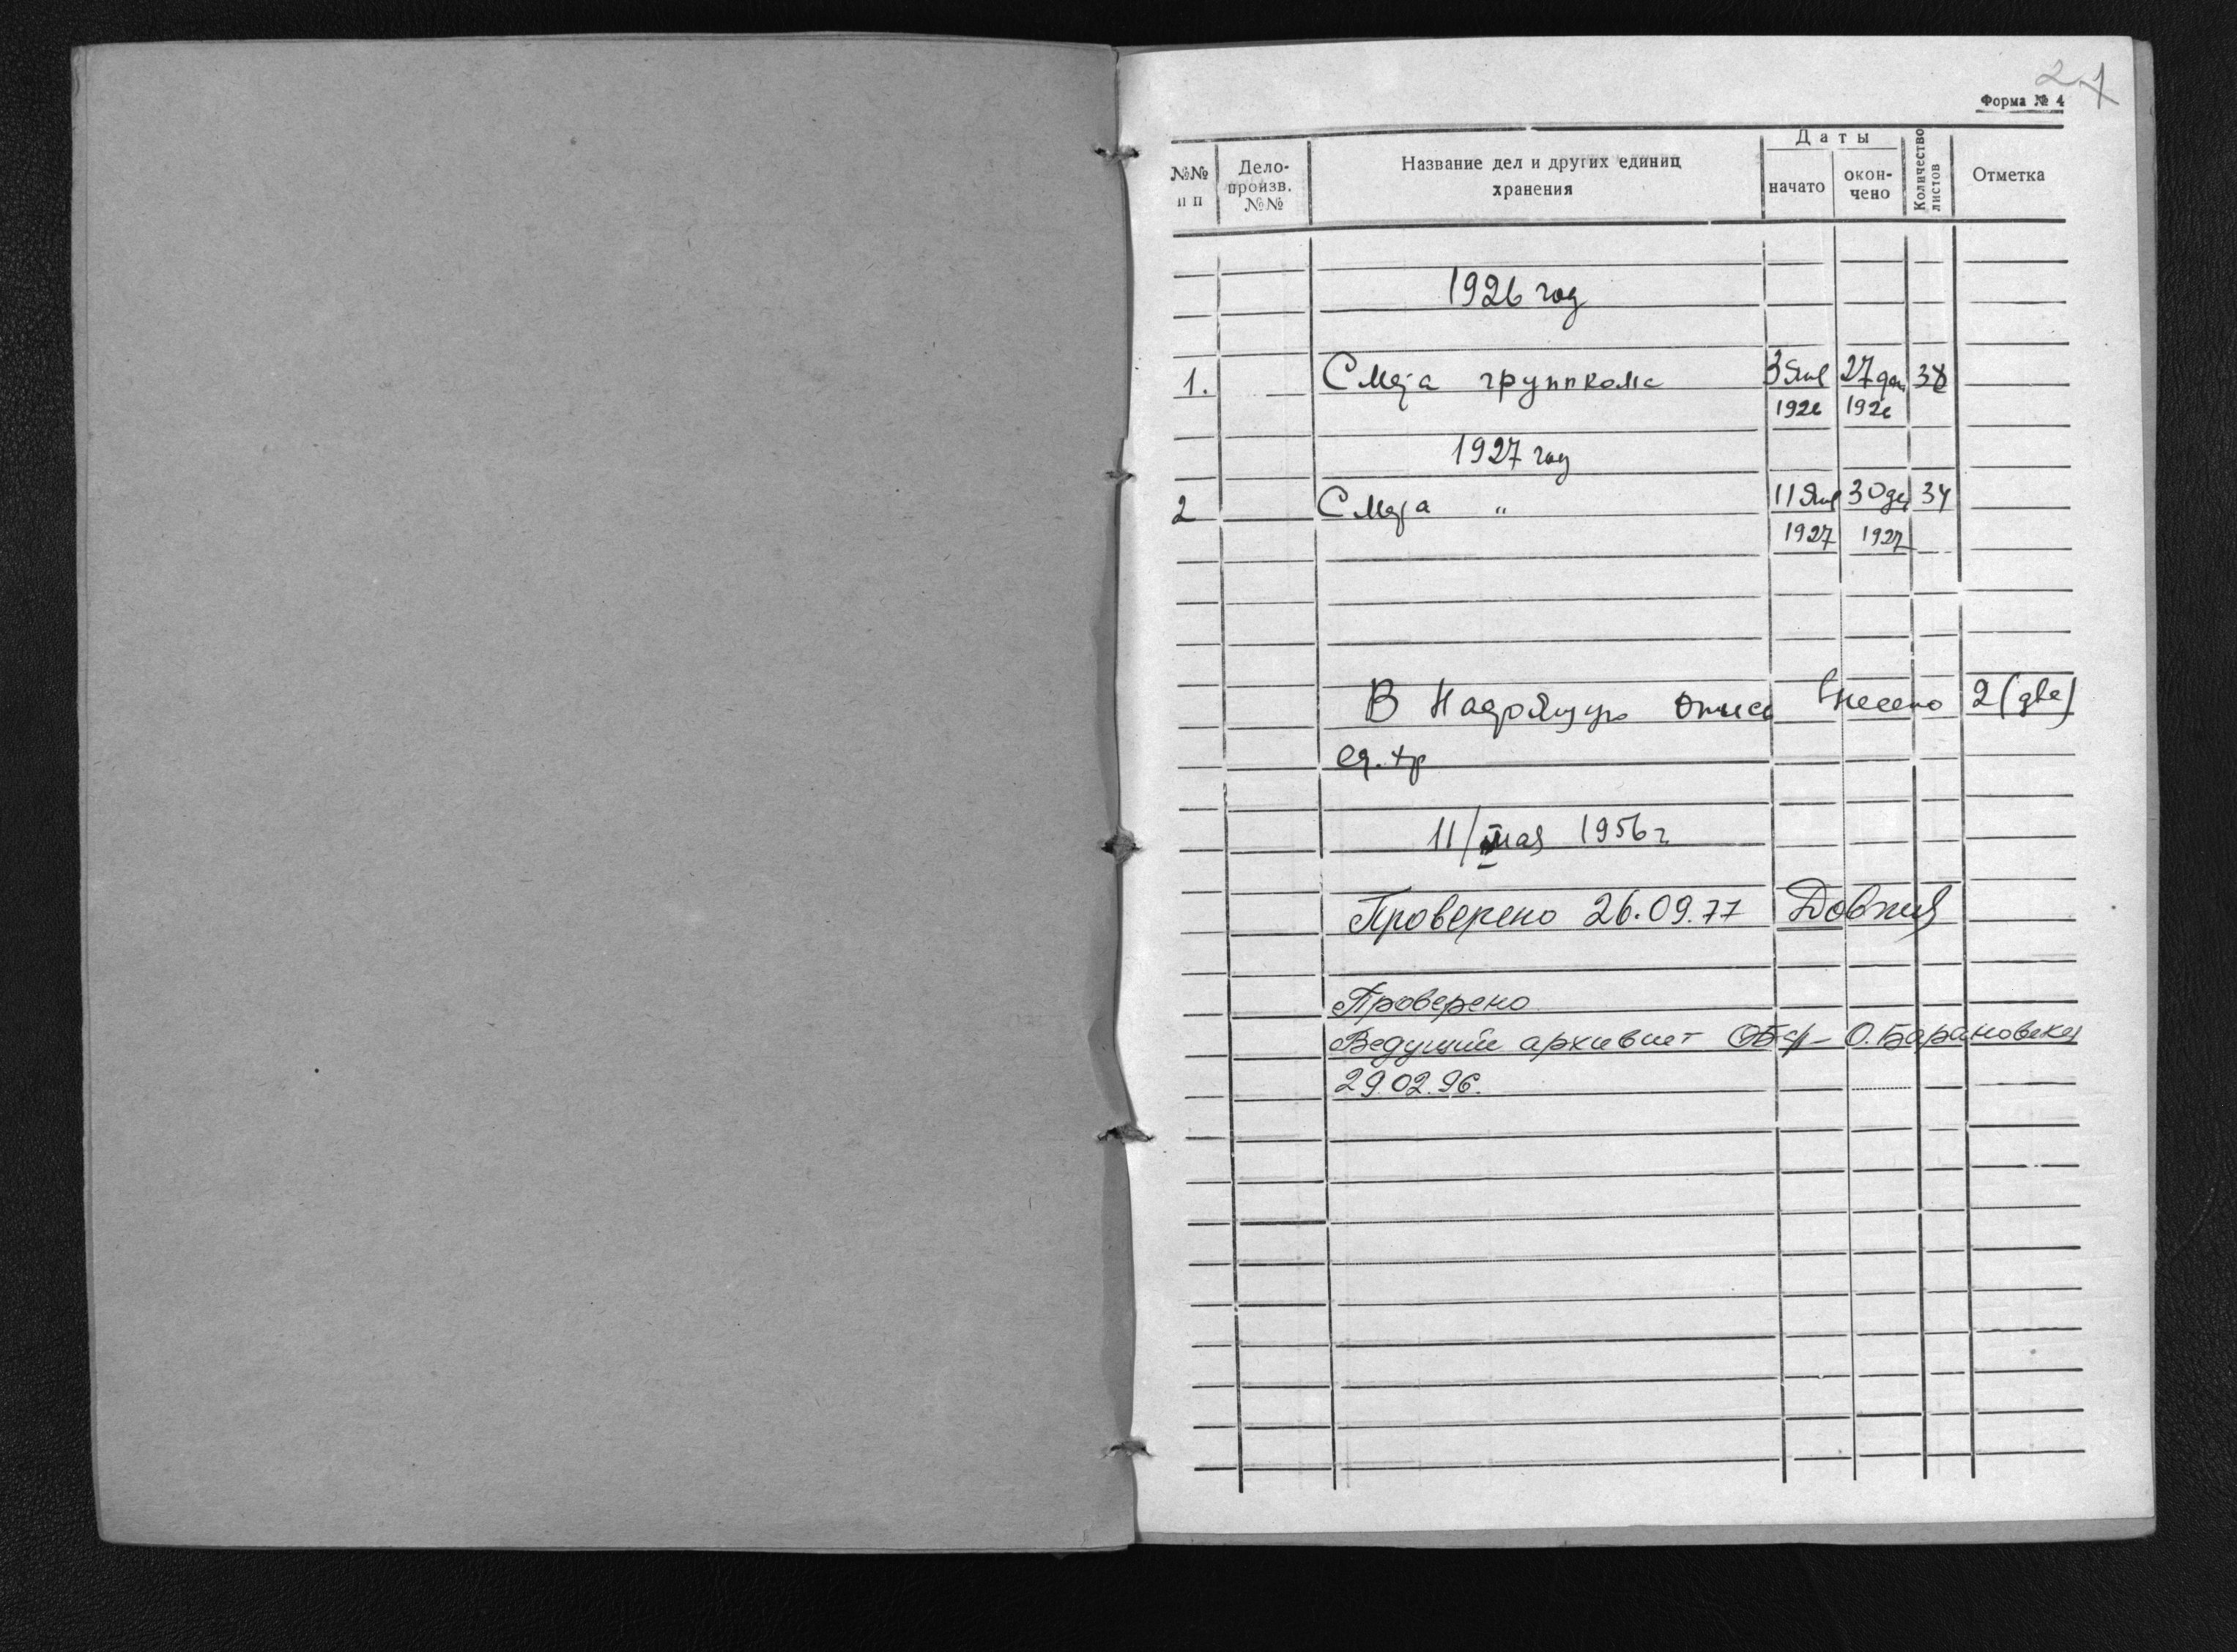 2 1
Форма № 4
№№ п п
Дело-произв. №№
Название дел и других единиц хранения
Даты
начато
окон-чено
Количество листов
Отметка
1926 год
1. Смета группкома 3 янв 27 дек 38
1926 1926
1927 год
2 Смета " 11 янв 30 де 34
1927 1927
В настоящую опись внесено 2 (две)
ед. хр
11/ мая 1956 г
Проверено 26.09.77
Проверено
Ведущий архивист О. Барановская
29.02.96.